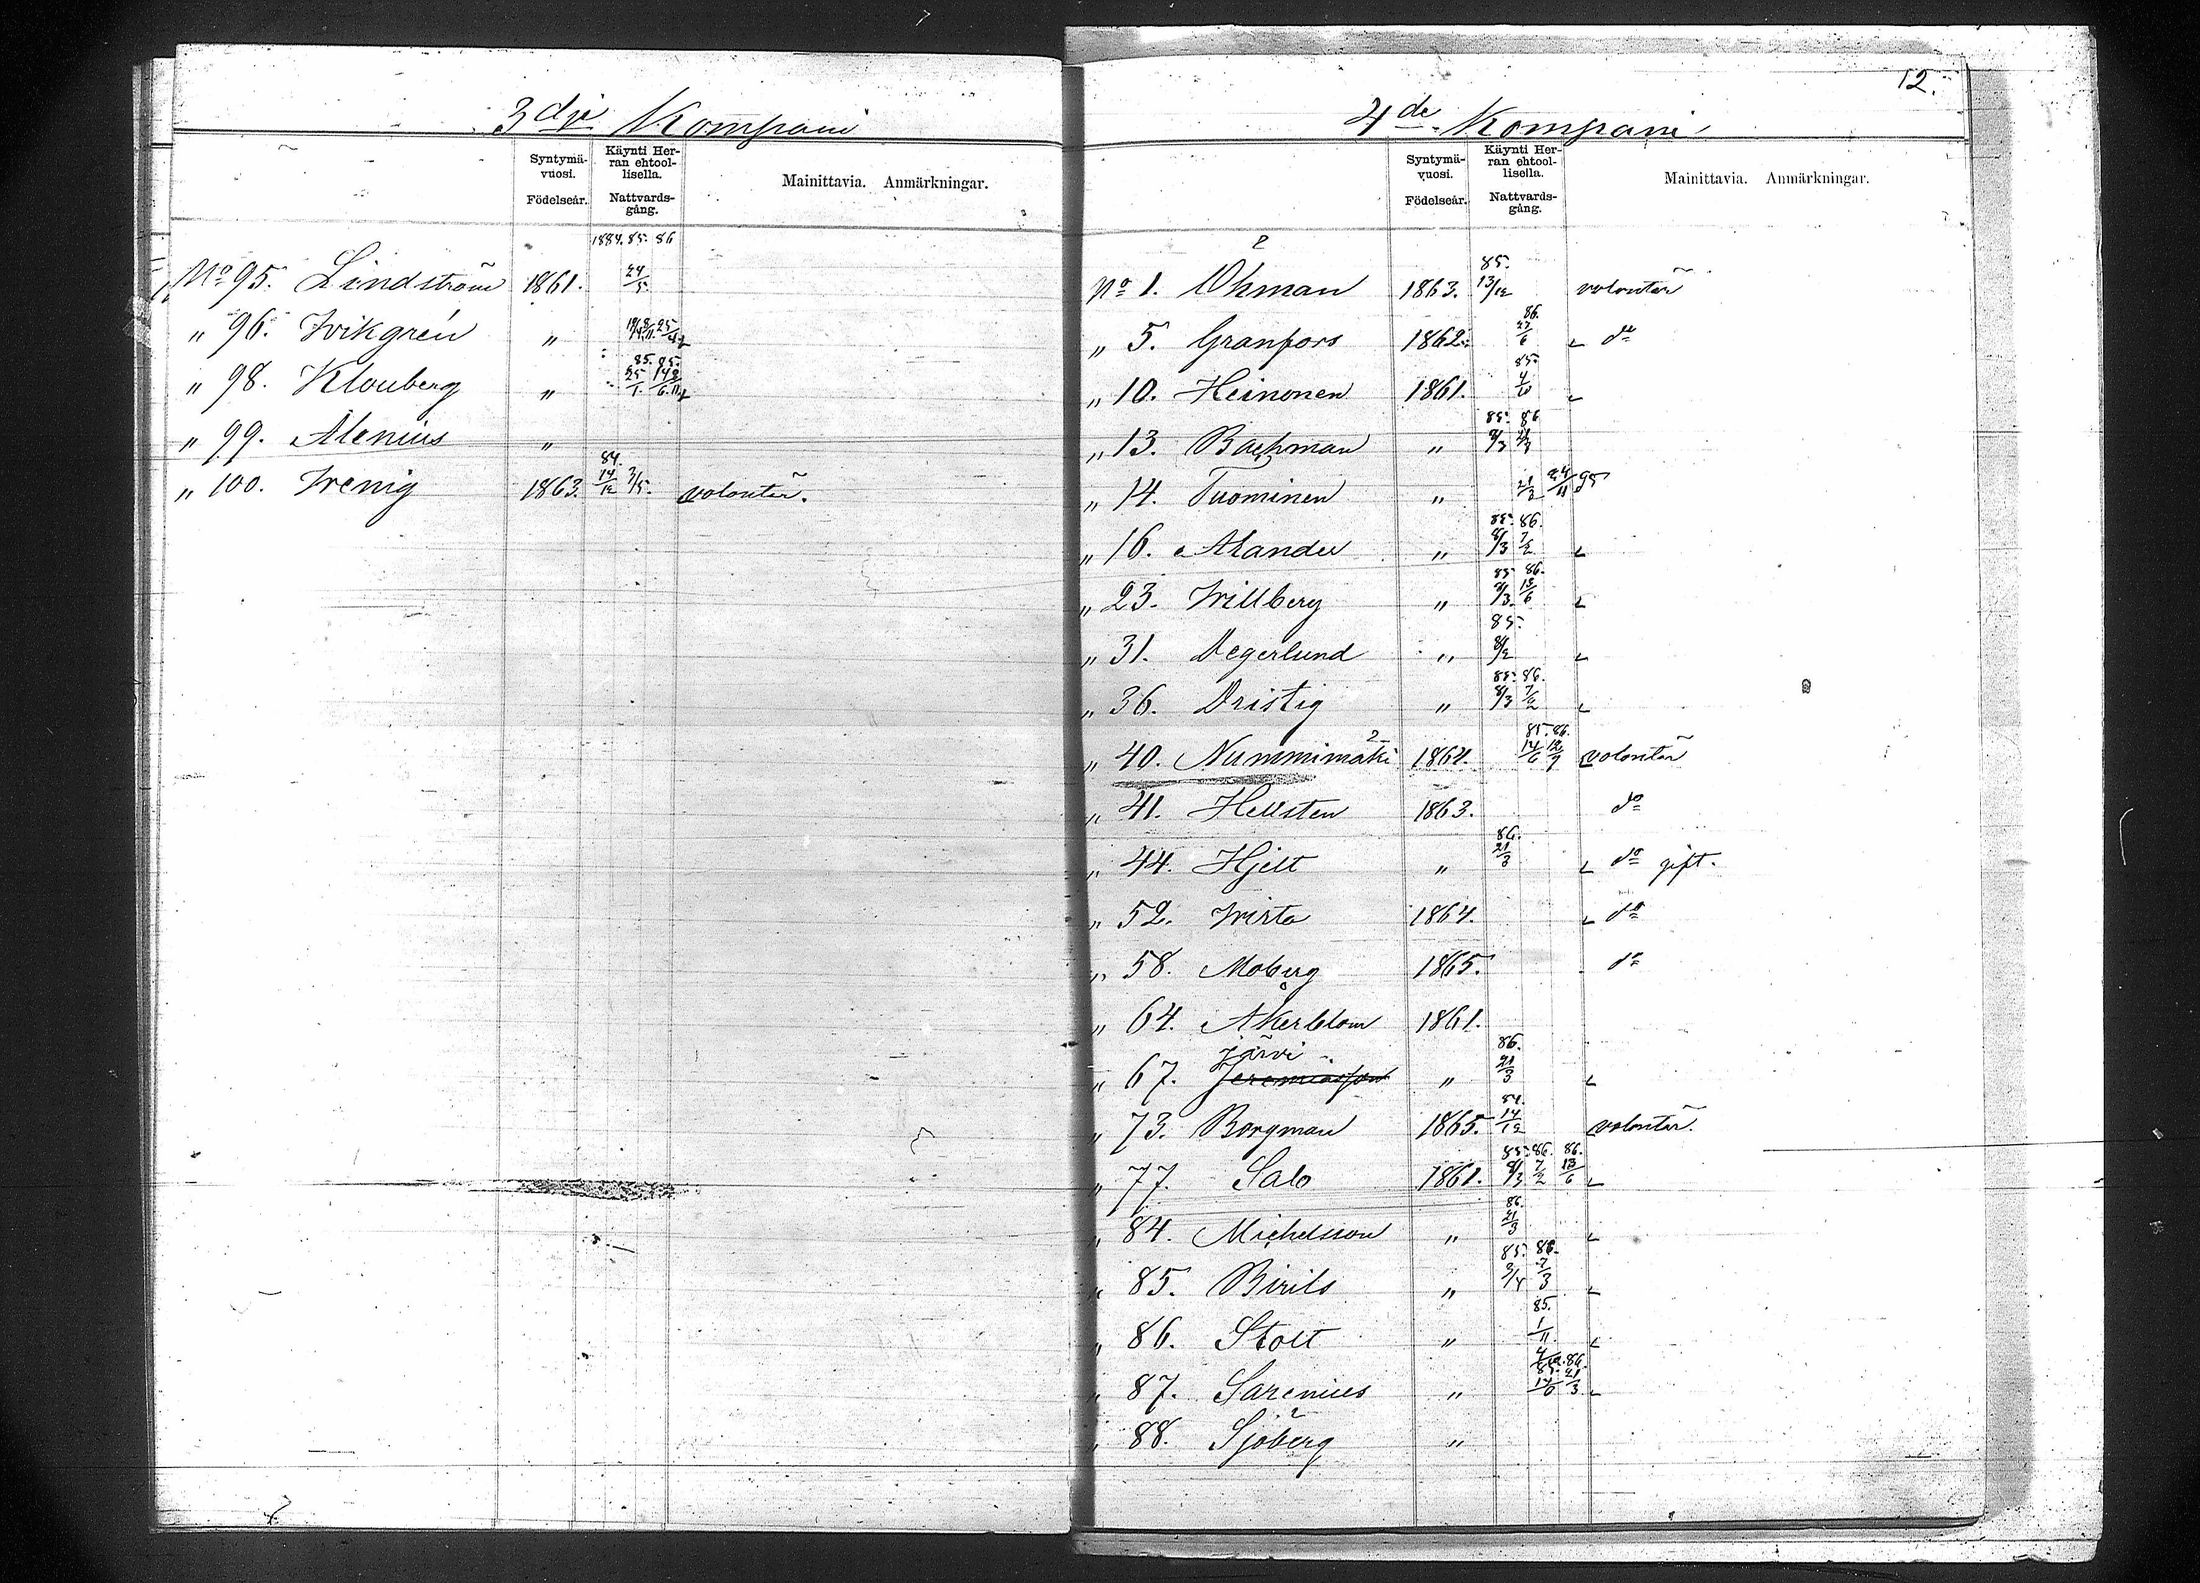 3dje Kompani
Syntymävuosi. Födelseår. Käynti Herran ehtoollisella. Nattvardsgång. Mainittavia. Anmärkningar.
1884. 85. 86
No 95. Lindström 1861. 24/5
" 96. Wikgrén "
" 98. Klouberg " 85. 85. 25/1
" 99. Alenius "
" 100. Wrenig 1863. 84. 14/12 3/5. volontär.
12.
4de Kompani
Syntymävuosi. Födelseår. Käynti Herran ehtoollisella. Nattvardsgång. Mainittavia. Anmärkningar.
No 1. Öhman 1863. 85. 13/12 volontär
" 5. Granfors 1862. 86. 27/6 do
" 10. Heinonen 1861. 85.
" 13. Backman " 85. 86
" 14. Tuominen " 21/3 24/11 95
" 16. Alander " 85. 86. 8/3 7/2
" 23. Willberg " 85. 86. 8/3 13/6
" 31. Degerlund " 85.
" 36. Dristig " 85. 86. 8/3 7/2
" 40. Nummimäki 1864. 85. 86. 14/6 12/9 volontär
" 41. Hellsten 1863. do
" 44. Hjelt " 86. 21/3 do gift.
" 52. Wirta 1864. do
" 58. Moberg 1865. do
" 64. Åkerblom 1861.
" 67. Järvi Jeremiasson " 86. 21/3
" 73. Borgman 1865. 84. 14/12 volontär.
" 77. Salo 1861. 85. 86. 86. 8/3 7/2 13/6
" 84. Michelsson " 86. 21/3
" 85. Birils " 85. 86. 3/4 7/3
" 86. Stolt " 85. 1/11
" 87. Sarenius " 85. 86. 14/6 21/3
" 88. Sjöberg "